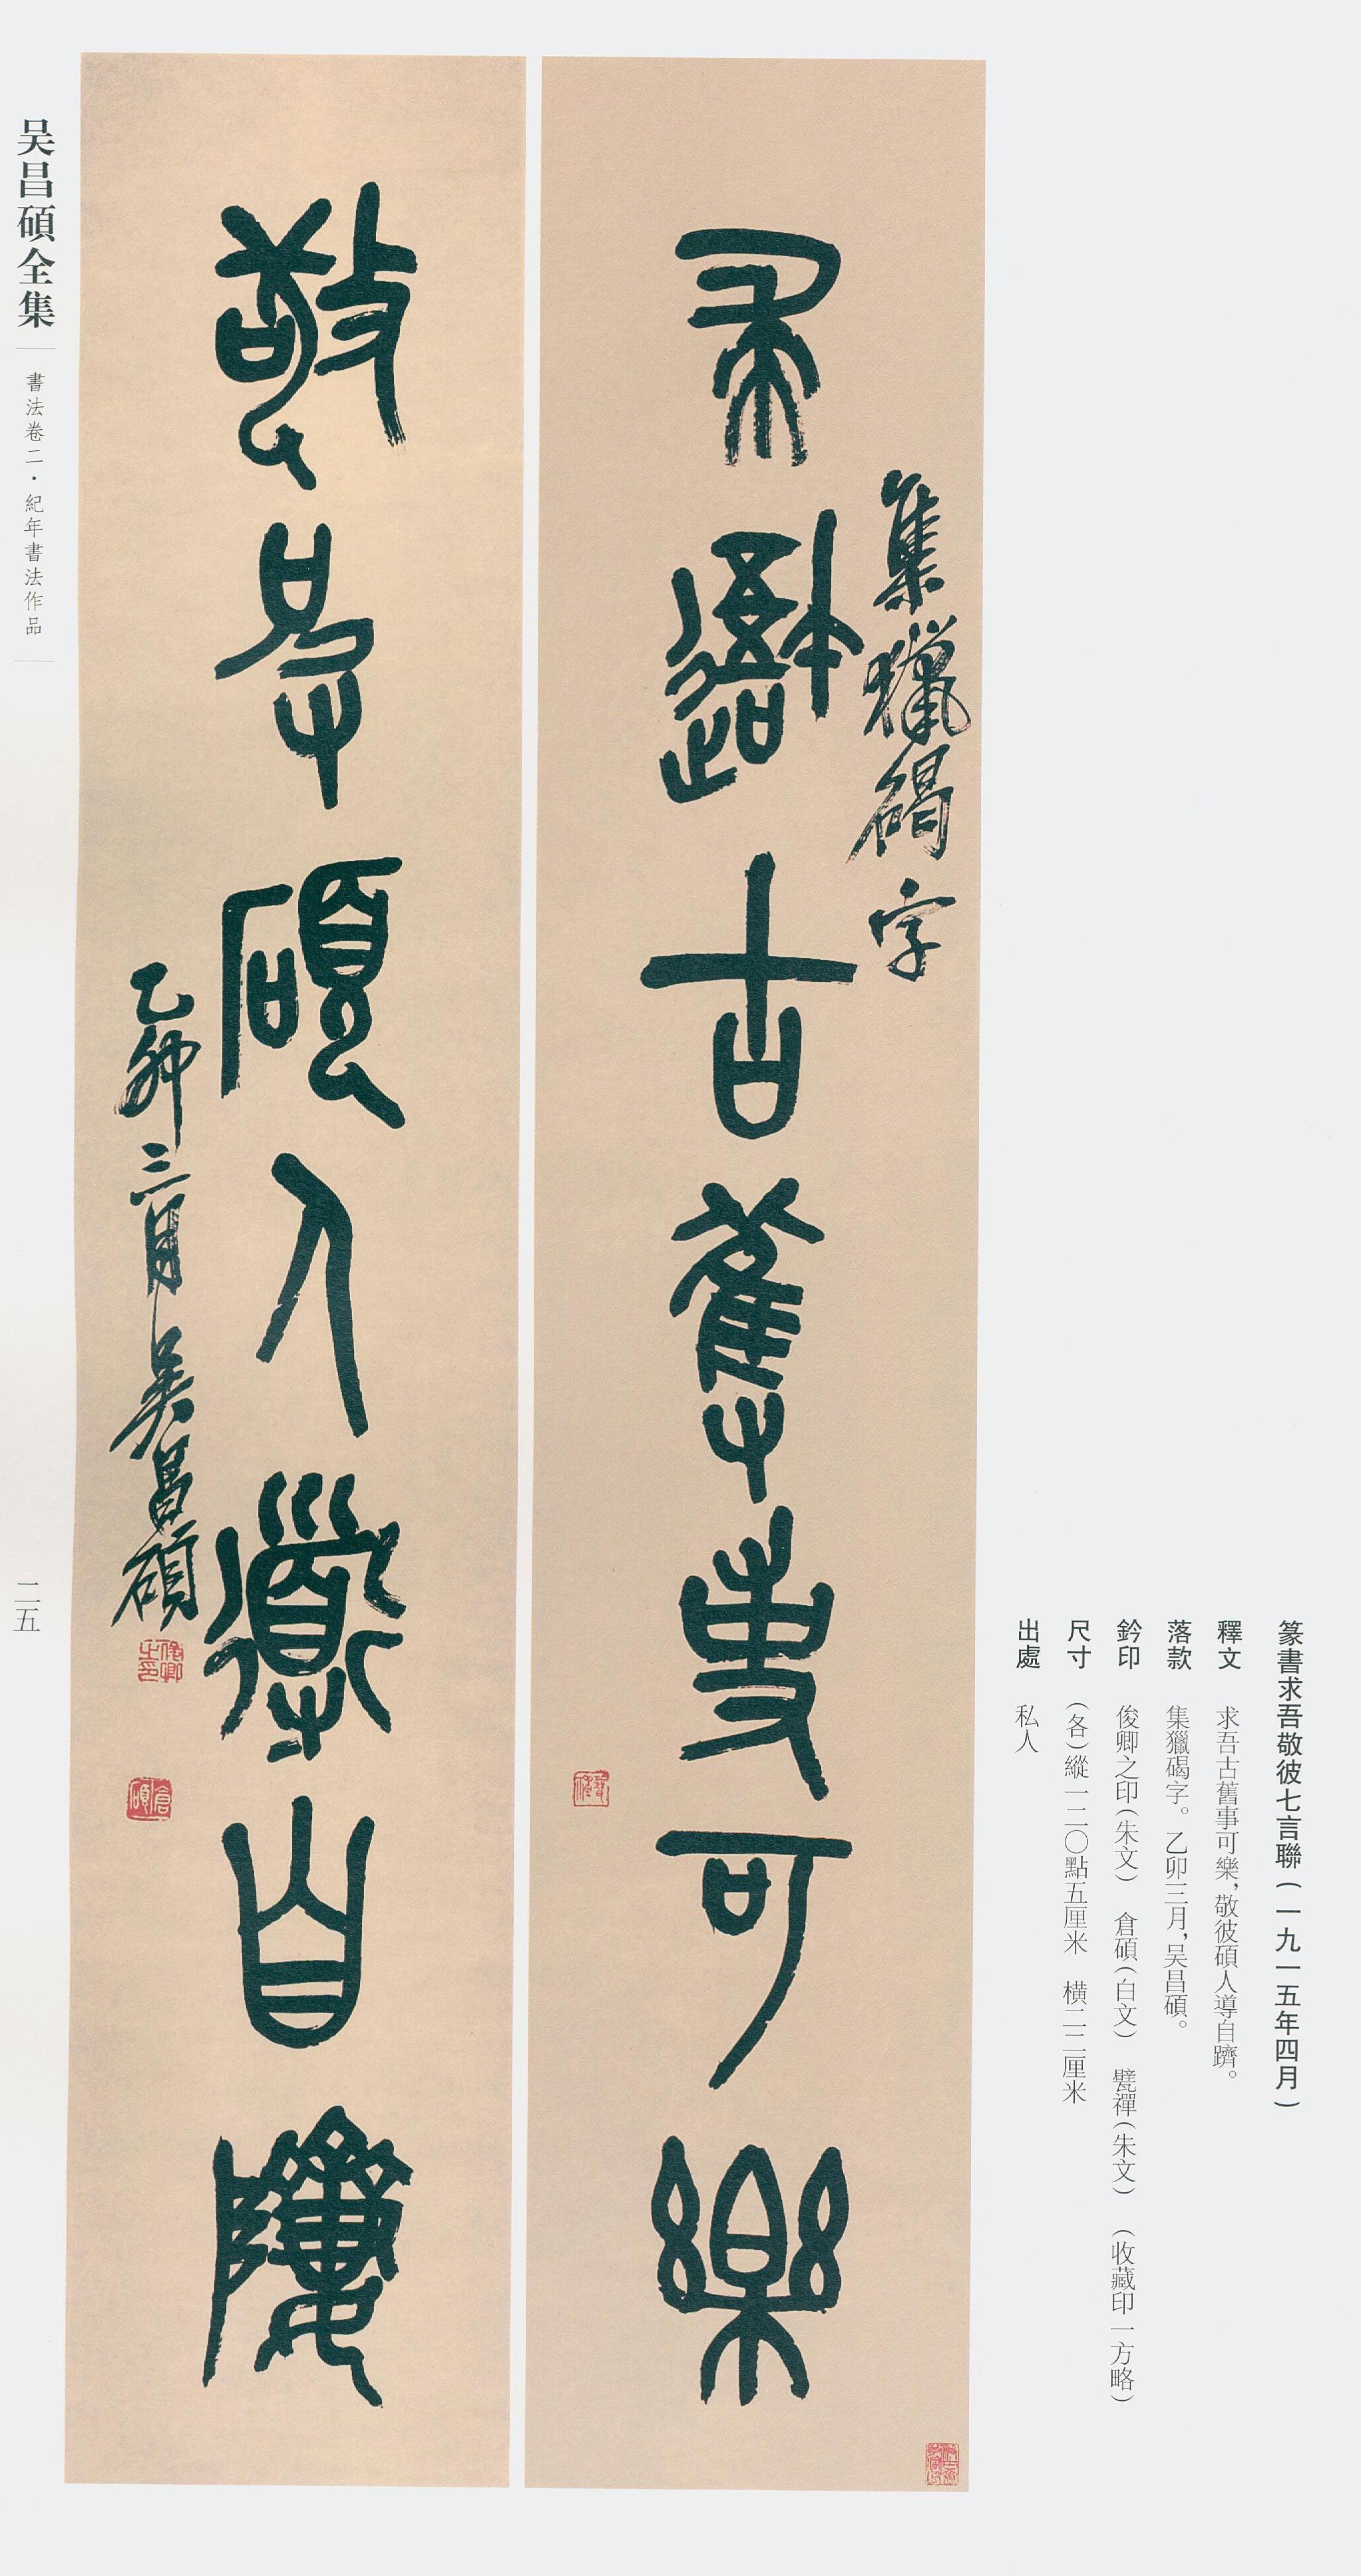 篆書求吾敬彼七言聯(一九一五年四月)
釋文 求吾古舊事可樂，敬彼碩人導自躋。
落款 集獵碣字。乙卯三月，吴昌碩。
鈐印 俊卿之印(朱文) 倉碩(白文) 甓禪(朱文) (收藏印一方略)
尺寸 (各)縱一二〇點五厘米 橫二二厘米
出處 私人
集獵碣字
求吾古舊事可樂
甓禪
敬彼碩人導自躋
乙卯三月吴昌碩
俊卿之印
倉碩
吴昌碩全集
書法卷二·紀年書法作品
二五